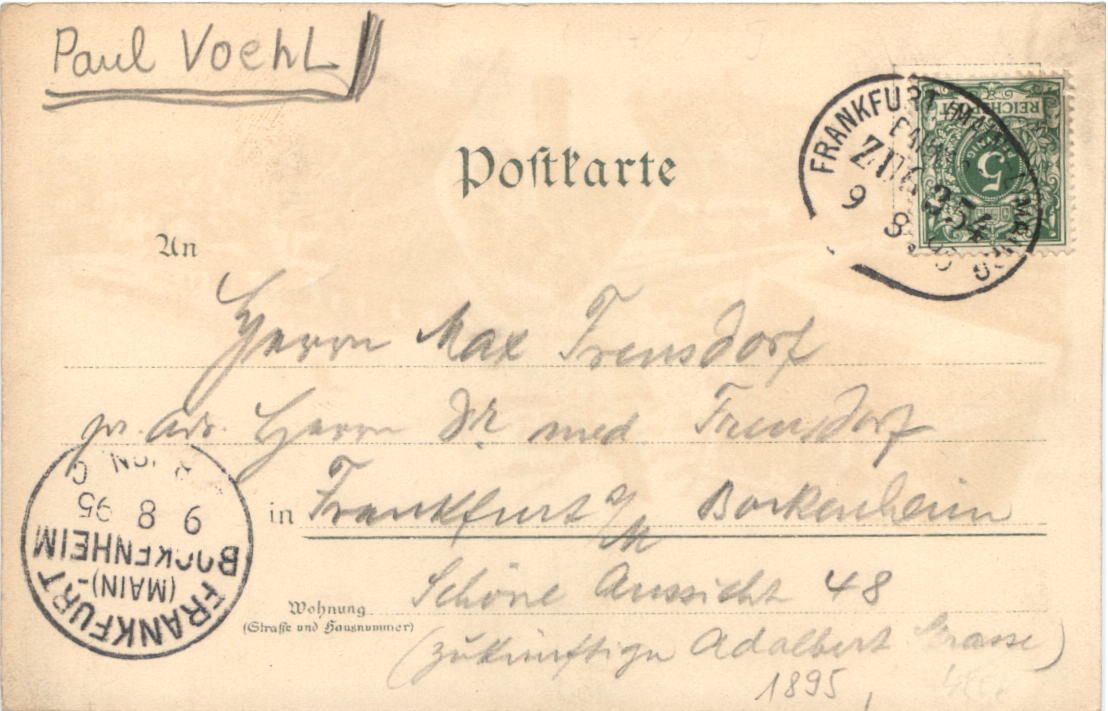 Paul Voehl
Postkarte
FRANKFURT (MAIN)
ZUG 354
9 8
REICHSPOST
5
An
Herrn Max Frensdorf
pr. Adr. Herrn Dr. med. Frensdorf
in Frankfurt a/M Bockenheim
Wohnung
(Straße und Hausnummer)
Schöne Aussicht 48
(zukünftige Adalbert Strasse)
1895
FRANKFURT
(MAIN)-
BOCKENHEIM
9 8 95